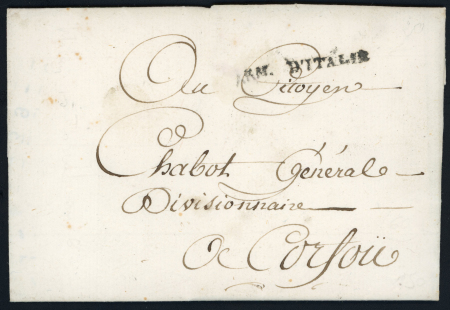 ARM. D'ITALIE
Au Citoyen
Chabot Général
Divisionnaire
A Corfou